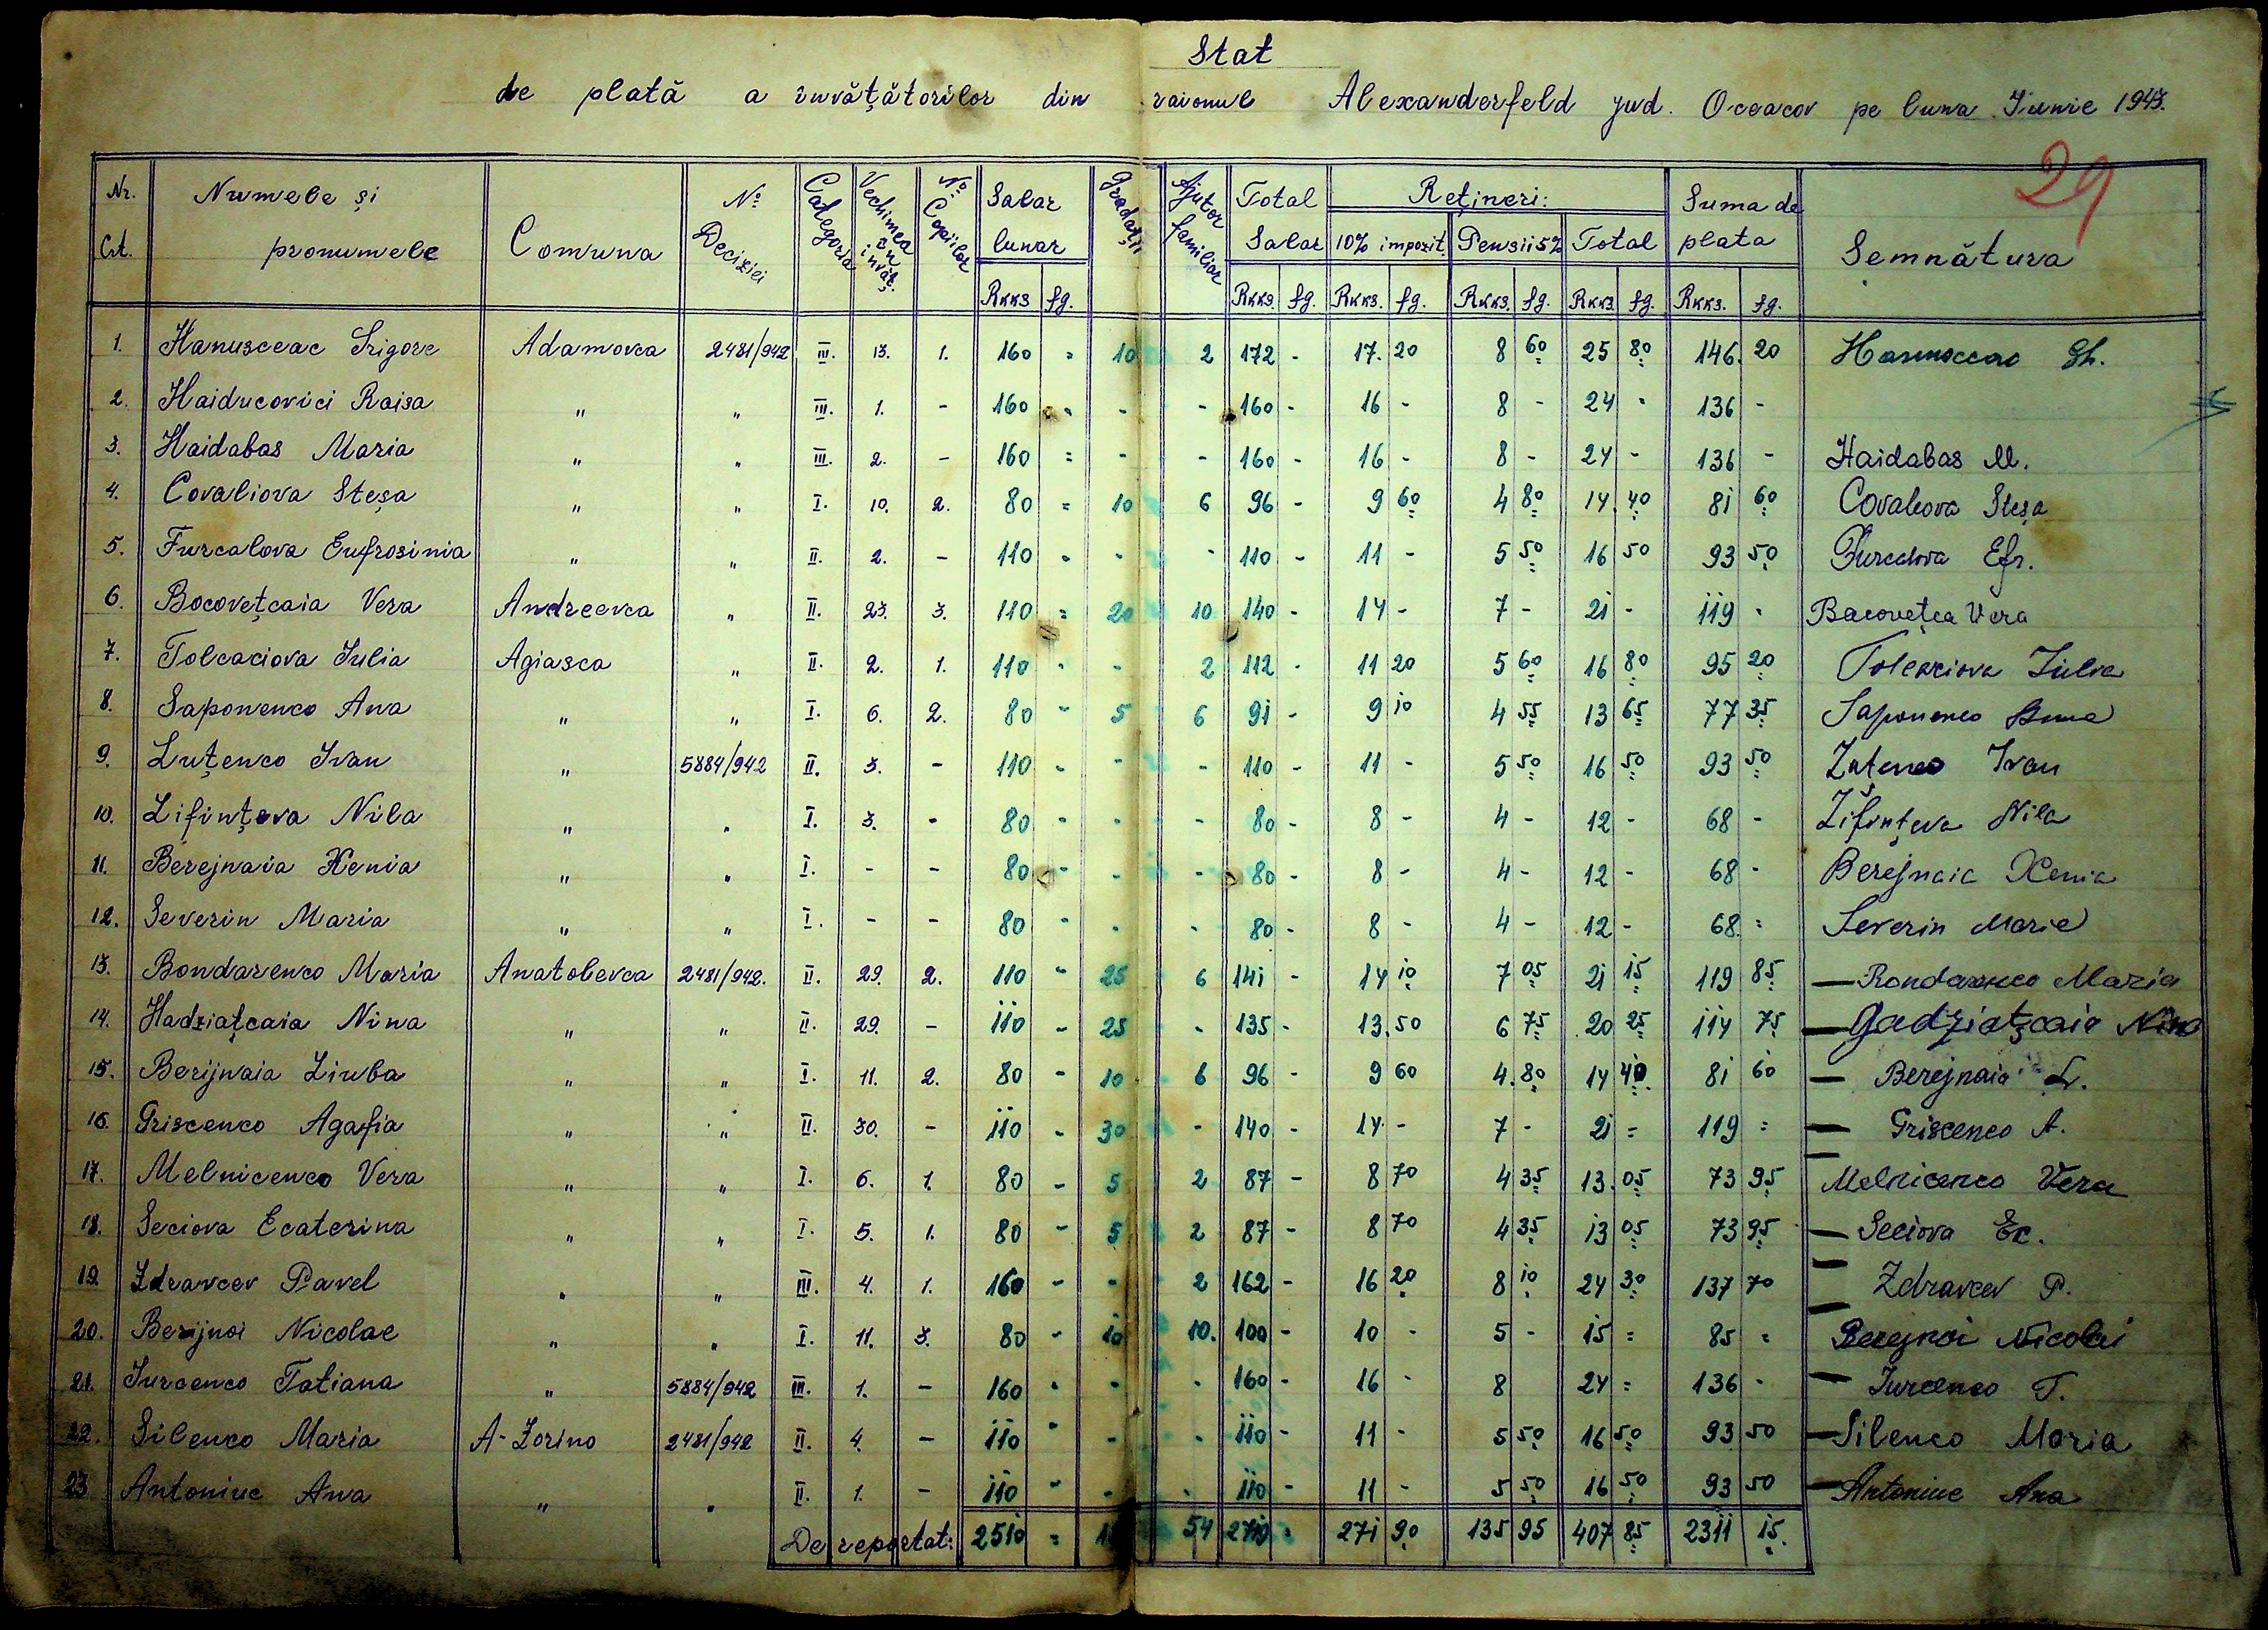 Stat
de plată a învăţătorilor din raionul Alexanderfeld jud. Oceacov pe luna Iunie 1943.
29
Nr. Crt. Numele şi pronumele Comuna No Deciziei Categoria Vechimea în învăţ. No Copiilor Salar lunar Gradaţii Ajutor familiar Total Salar Reţineri: Suma de plata Semnătura
10% impozit. Pensii 5% Total
Rkks fg. Rkks. fg. Rkks. fg. Rkks. fg. Rkks fg. Rkks. fg.
1. Hanusceac Grigore Adamovca 2481/942 III. 13. 1. 160 = 10 2 172 - 17. 20 8 60 25 80 146. 20
2. Haiducovici Raisa " " III. 1. - 160 - - - 160 - 16 - 8 - 24 - 136 -
3. Haidabas Maria " " III. 2. - 160 = - - 160 - 16 - 8 - 24 - 136 - Haidabas M.
4. Covaliova Steşa " " I. 10. 2. 80 = 10 6 96 - 9 60 4 80 14. 40 81 60 Covaliova Steşa
5. Furcalova Eufrosinia " " II. 2. - 110 - - - 110 - 11 - 5 50 16 50 93 50 Furcalova Efr.
6. Bocoveţcaia Vera Andreevca " II. 23. 3. 110 = 20 10 140 - 14 - 7 - 21 - 119 - Bacoveţca Vera
7. Tolcaciova Iulia Agiasca " II. 2. 1. 110 - - 2 112 - 11 20 5 60 16 80 95 20 Tolcaciova Iulia
8. Saponenco Ana " " I. 6. 2. 80 - 5 6 91 - 9 10 4 55 13 65 77 35 Saponenco Ana
9. Luţenco Ivan " 5884/942 II. 3. - 110 - - - 110 - 11 - 5 50 16 50 93 50 Luţenco Ivan
10. Lifinţeva Nila " " I. 3. - 80 - - - 80 - 8 - 4 - 12 - 68 - Lifinţeva Nila
11. Berejnaia Xenia " " I. - - 80 - - - 80 - 8 - 4 - 12 - 68 - Berejnaia Xenia
12. Severin Maria " " I. - - 80 - - - 80 - 8 - 4 - 12 - 68 = Severin Maria
13. Bondarenco Maria Anatolevca 2481/942. II. 29. 2. 110 - 25 6 141 - 14 10 7 05 21 15 119 85 — Bondarenco Maria
14. Hadziaţcaia Nina " " II. 29. - 110 - 25 - 135 - 13. 50 6 75 20 25 114 75 — Gadziaţcaia Nina
15. Berijnaia Liuba " " I. 11. 2. 80 - 10 6 96 - 9 60 4. 80 14 40 81 60 — Berejnaia L.
16. Griscenco Agafia " " II. 30. - 110 - 30 - 140 - 14 - 7 - 21 = 119 = — Griscenco A.
17. Melnicenco Vera " " I. 6. 1. 80 - 5 2 87 - 8 70 4 35 13. 05 73 95 Melnicenco Vera
18. Seciova Ecaterina " " I. 5. 1. 80 - 5 2 87 - 8 70 4 35 13 05 73 95 — Seciova Ec.
19. Zdravcev Pavel " " III. 4. 1. 160 - - 2 162 - 16 20 8 10 24 30 137 70 — Zdravcev P.
20. Berijnoi Nicolae " " I. 11. 3. 80 - 10 10. 100 - 10 - 5 - 15 = 85 = Berejnoi Nicolai
21. Iurcenco Tatiana " 5884/942 III. 1. - 160 - - - 160 - 16 - 8 24 = 136 - — Iurcenco T.
22. Silenco Maria A-Zorino 2481/942 II. 4. - 110 - - - 110 - 11 - 5 50 16 50 93 50 — Silenco Maria
23 Antoniuc Ana " " II. 1. - 110 - - - 110 - 11 - 5 50 16 50 93 50 — Antoniuc Ana
De reportat: 2510 = 54 271 90 135 95 407 85 2311 15.